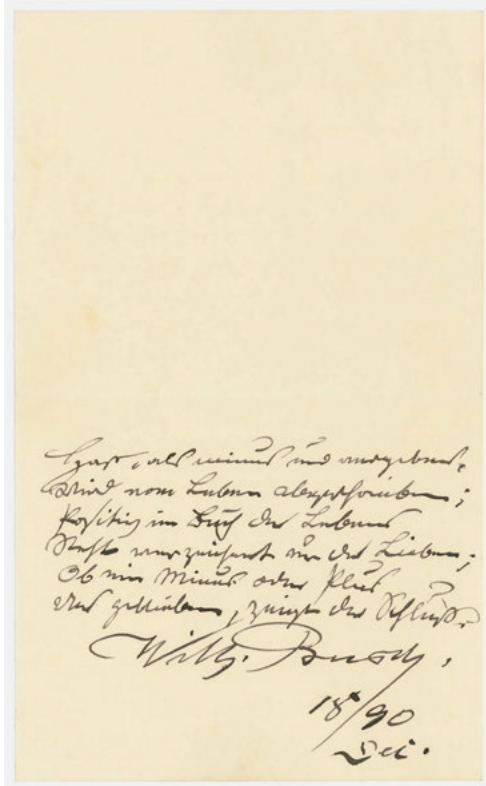 Haß, als minus und vergebens,
Wird vom Leben abgeschrieben;
Positiv im Buch des Lebens
Steht verzeichnet nur das Lieben;
Ob ein Minus oder Plus
Uns geblieben, zeigt der Schluß.
Wilh. Busch.
18/90